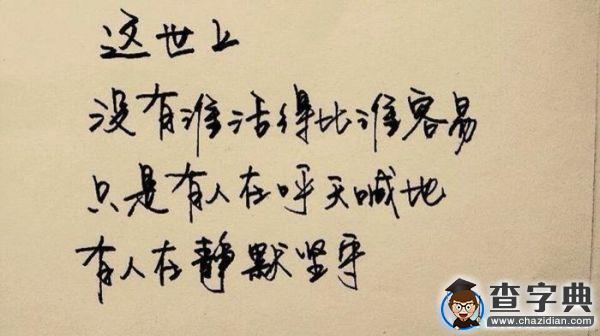 这世上
没有谁活得比谁容易
只是有人在呼天喊地
有人在静默坚守
查字典
www.chazidian.com